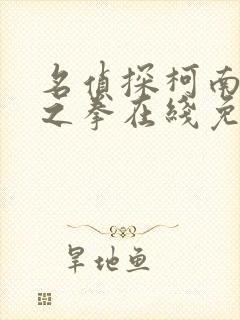 名偵探柯南
之拳在綫免
旱地鱼